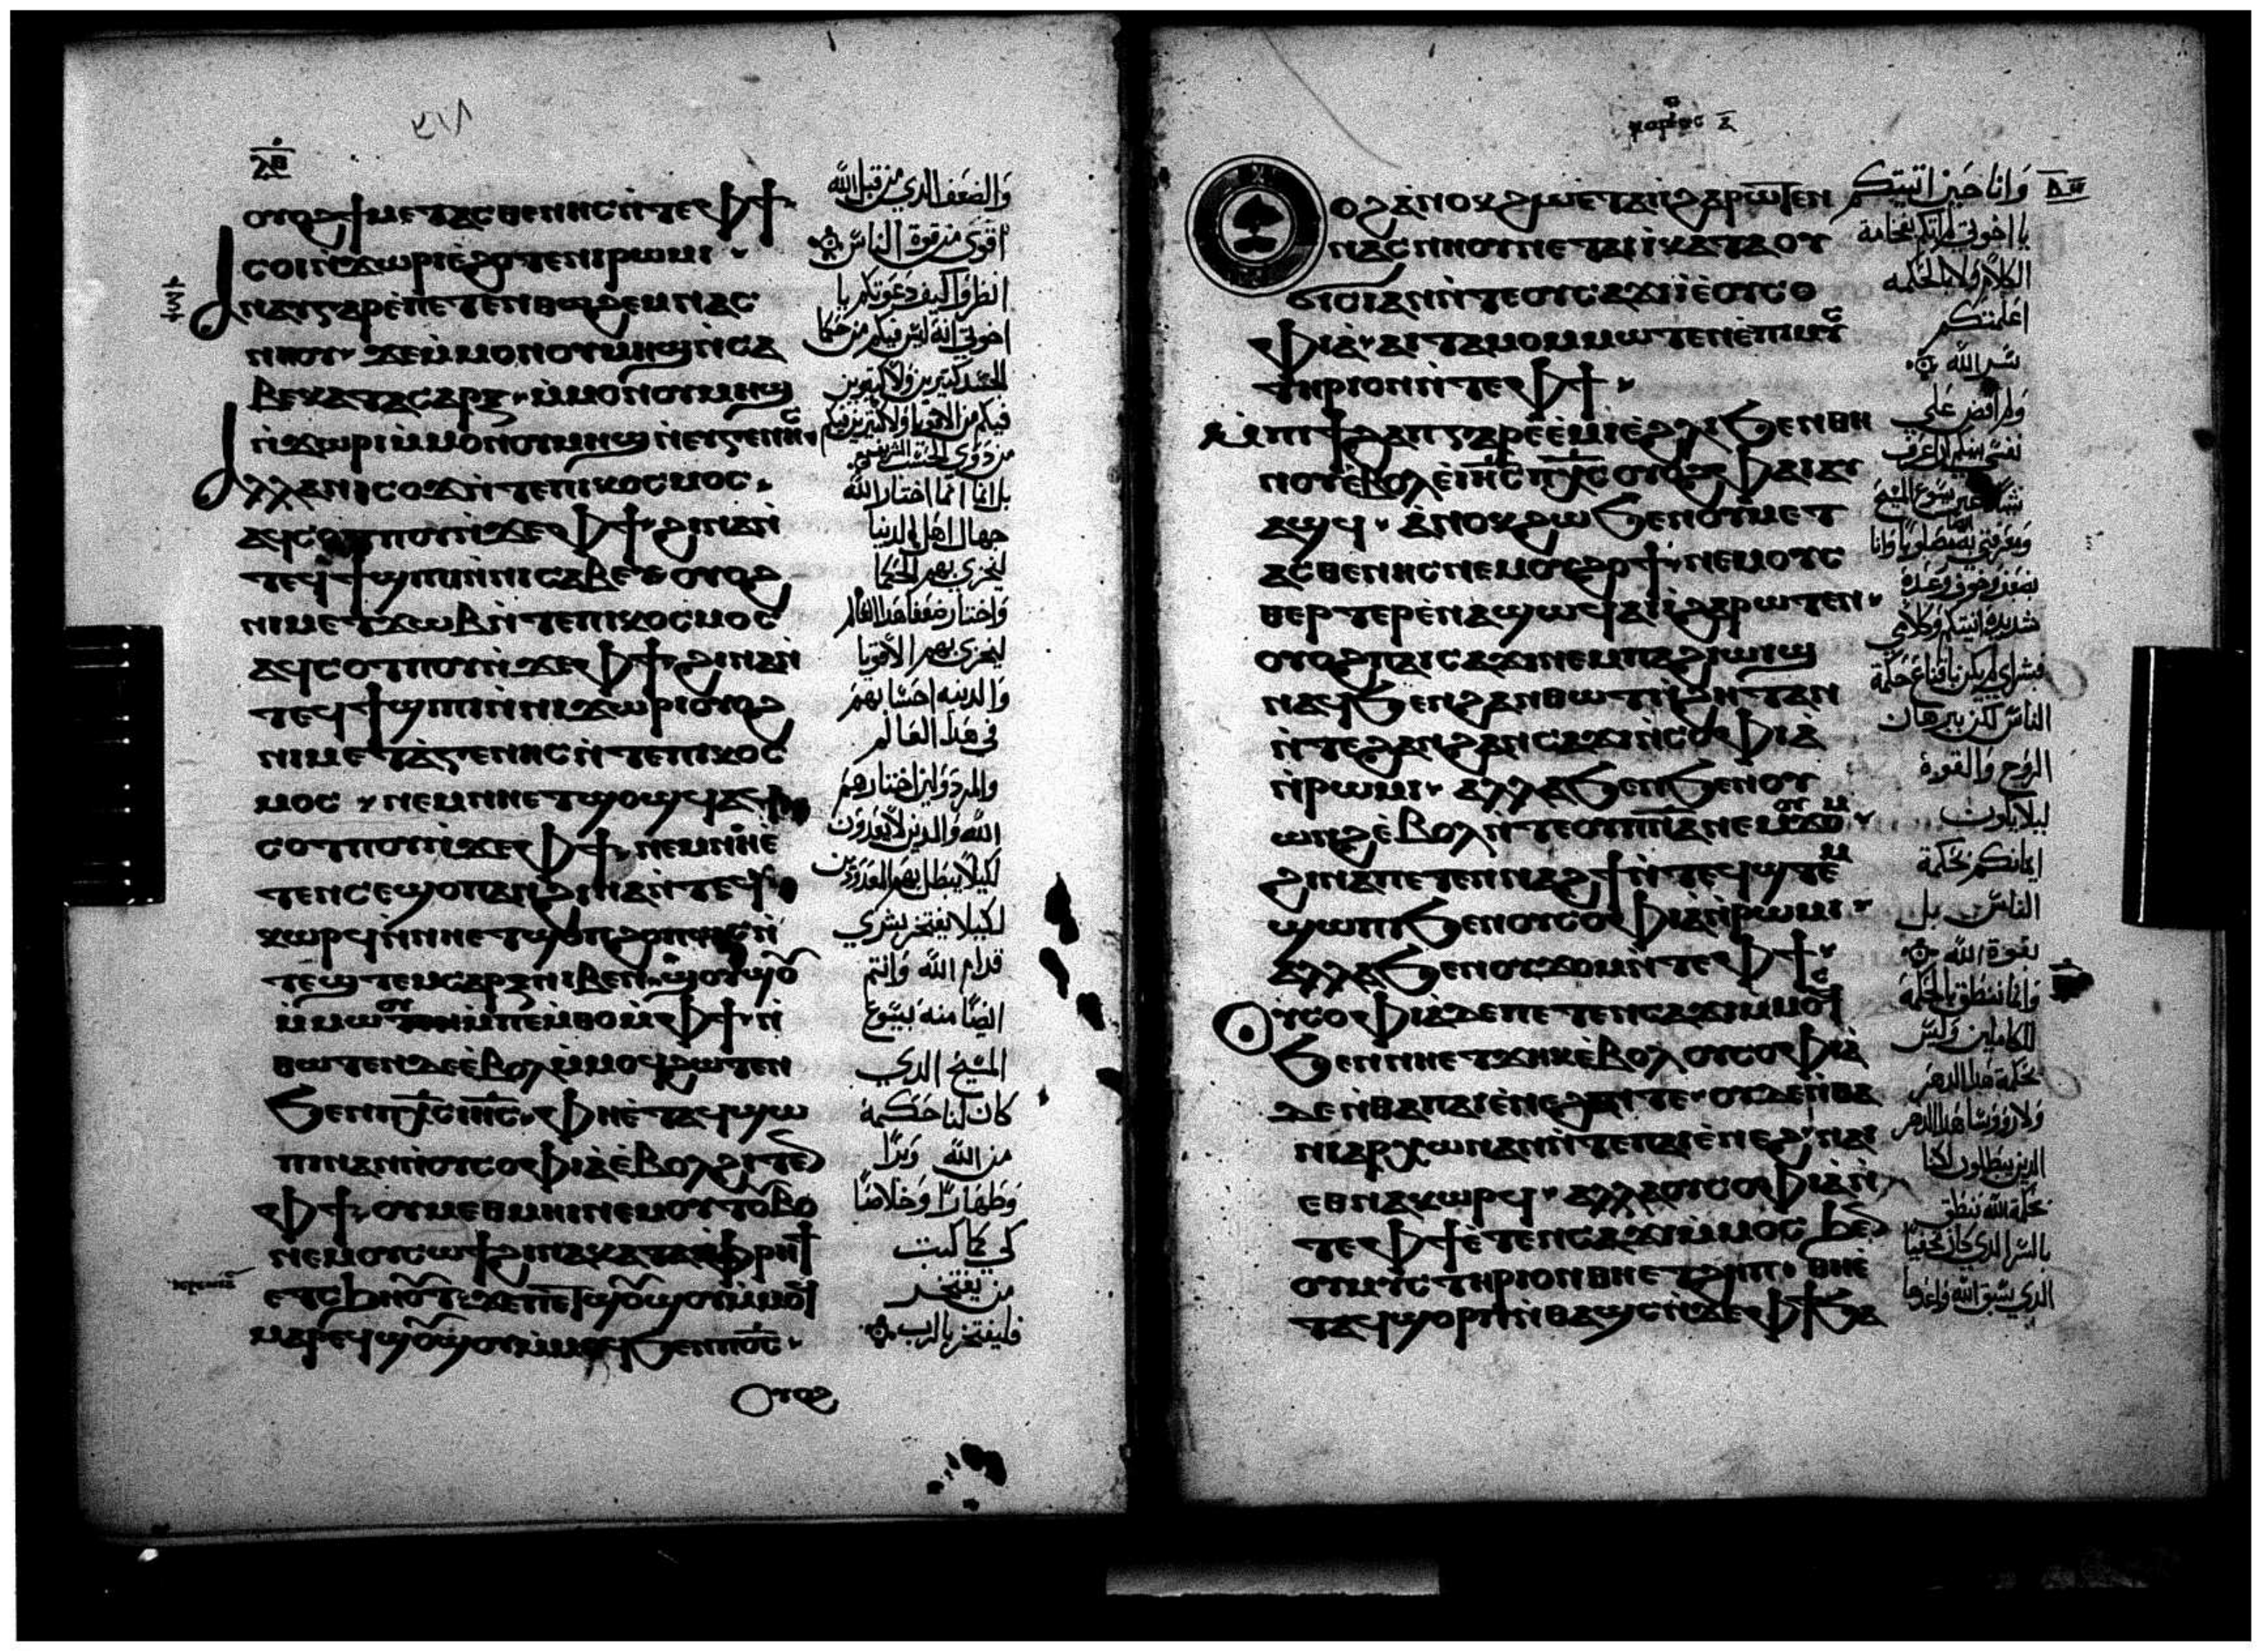 ⲗⲃ
ⲟⲩⲟϩ ϯⲙⲉⲧⲁⲥⲑⲉⲛⲏⲥ ⲛ̀ⲧⲉ ⲫϯ
ⲥⲟⲓ ⲛ̀ϫⲱⲣⲓ ⲉ̀ϩⲟⲧⲉ ⲛⲓⲣⲱⲙⲓ
ⲁⲛⲁⲩ ⲅⲁⲣ ⲉ̀ⲡⲉⲧⲉⲛⲑⲱϩⲉⲙ ⲛⲁⲥ
ⲛⲏⲟⲩ ϫⲉ ⲙ̀ⲙⲟⲛ ⲟⲩⲙⲏϣ ⲛ̀ⲥⲁ
ⲃⲉ ⲕⲁⲧⲁ ⲥⲁⲣⲝ ⲙ̀ⲙⲟⲛ ⲟⲩⲙⲏϣ
ⲛ̀ϫⲱⲣⲓ ⲙ̀ⲙⲟⲛ ⲟⲩⲙⲏϣ ⲛ̀ⲉⲩⲅⲉⲛⲏⲥ
ⲁⲗⲗⲁ ⲛⲓⲥⲟϫ ⲛ̀ⲧⲉ ⲡⲓⲕⲟⲥⲙⲟⲥ
ⲁϥⲥⲟⲧⲡⲟⲩ ⲛ̀ϫⲉ ⲫϯ ϩⲓⲛⲁ ⲛ̀
ⲧⲉϥϯϣⲓⲡⲓ ⲛ̀ⲛⲓⲥⲁⲃⲉⲩ ⲟⲩⲟϩ
ⲛⲓⲙⲉⲧϫⲱⲃ ⲛ̀ⲧⲉ ⲡⲓⲕⲟⲥⲙⲟⲥ
ⲁϥⲥⲟⲧⲡⲟⲩ ⲛ̀ϫⲉ ⲫϯ ϩⲓⲛⲁ ⲛ̀
ⲧⲉϥϯϣⲓⲡⲓ ⲛ̀ⲛⲓϫⲱⲣⲓ ⲟⲩⲟϩ
ⲛⲓⲙⲉⲧⲁ̀ⲅⲉⲛⲏⲥ ⲛ̀ⲧⲉ ⲡⲓⲕⲟⲥ
ⲙⲟⲥ ⲛⲉⲙ ⲛⲏⲉⲧϣⲟϣϥ ⲁϥ
ⲥⲟⲧⲡⲟⲩ ⲛ̀ϫⲉ ⲫϯ ⲛⲉⲙ ⲛⲏⲉ̀
ⲧⲉⲛⲥⲉϣⲟⲡ ⲁⲛ ϩⲓⲛⲁ ⲛ̀ⲧⲉϥ
ⲕⲱⲣϥ ⲛ̀ⲛⲏⲉⲧϣⲟⲡ ϩⲟⲡⲱⲥ ⲛ̀
ⲧⲉϣⲧⲉⲙⲥⲁⲣⲝ ⲛⲓⲃⲉⲛ ϣⲟⲩϣⲟⲩ
ⲙ̀ⲙⲱⲟⲩ ⲙ̀ⲡⲉⲙⲑⲟ ⲙ̀ⲫϯ ⲛ̀
ⲑⲱⲧⲉⲛ ⲇⲉ ⲉ̀ⲃⲟⲗ ⲙ̀ⲙⲟϥ ϩⲱⲧⲉⲛ
ϧⲉⲛ ⲡⲭ̅ⲥ̅ ⲓⲏ̅ⲥ̅ ⲫⲏⲉ̀ⲧⲁϥϣⲱ
ⲡⲓ ⲛⲁⲛ ⲛ̀ⲟⲩⲥⲟⲫⲓⲁ̀ ⲉ̀ⲃⲟⲗ ϩⲓⲧⲉⲛ
ⲫϯ ⲟⲩⲙⲉⲑⲙⲏⲓ ⲛⲉⲙ ⲟⲩⲧⲟⲩⲃⲟ
ⲛⲉⲙ ⲟⲩⲥⲱϯ ϩⲓⲛⲁ ⲕⲁⲧⲁ ⲫⲣⲏϯ
ⲉⲧⲥϧⲏⲟⲩⲧ ϫⲉ ⲡⲉⲧϣⲟⲩϣⲟⲩ ⲙ̀ⲙⲟϥ
ⲙⲁⲣⲉϥϣⲟⲩϣⲟⲩ ⲙ̀ⲙⲟϥ ϧⲉⲛ ⲡⲟ̅ⲥ̅
ⲟⲩⲟϩ
والضعف الذي من قبل الله
اقوى من قوة الناس
انظروا كيف دعوتكم يا
اخوتي انه ليس فيكم من حكما
الجسد كتيرين ولا كتيرين
فيكم من الاقويا ولا كتيرين فيكم
من ذوي الجنس الشريف
بل انما اختار الله
جهال اهل الدنيا
ليخزي بهم الحكما
واختار ضعفا هذا العالم
ليخزي بهم الاقويا
والدنيه احسابهم
في هذا العالم
والمردولين اختارهم
الله والدين لا يعدون
لكيلا يبطل بهم المعدودين
لكيلا يفتخر بشري
قدام الله وانتم
ايضا منه بيسوع
المسيح الدي
كان لنا حكمة
من الله وبرا
وطهارا وخلاصا
كي كما كتب
من يفتخر
فليفتخر بالرب
ⲟⲩⲟϩ ⲁ̀ⲛⲟⲕ ϩⲱ ⲉ̀ⲧⲁⲓⲓ̀ ϩⲁⲣⲱⲧⲉⲛ
ⲛⲁⲥⲛⲏⲟⲩ ⲛⲉⲧⲁⲓⲓ̀ ⲕⲁⲧⲁ ⲟⲩ
ϭⲓⲥⲓ ⲁⲛ ⲛ̀ⲧⲉ ⲟⲩⲥⲁϫⲓ ⲓⲉ ⲟⲩⲥⲟ
ⲫⲓⲁ̀ ⲁⲓⲧⲁⲙⲟ ⲙ̀ⲙⲱⲧⲉⲛ ⲉ̀ⲡⲓⲙⲩⲥ
ⲧⲏⲣⲓⲟⲛ ⲛ̀ⲧⲉ ⲫϯ
ⲙ̀ⲡⲓϯϩⲁⲡ ⲅⲁⲣ ⲉ̀ⲉ̀ⲙⲓ ⲉ̀ϩⲗⲓ ϧⲉⲛ ⲑⲏ
ⲛⲟⲩ ⲉ̀ⲃⲟⲗ ⲉ̀ⲓⲏ̅ⲥ̅ ⲡⲭ̅ⲥ̅ ⲟⲩⲟϩ ⲫⲁⲓ ⲁⲩ
ⲁϣϥ ⲁ̀ⲛⲟⲕ ϩⲱ ϧⲉⲛ ⲟⲩⲙⲉⲧ
ⲁⲥⲑⲉⲛⲏⲥ ⲛⲉⲙ ⲟⲩϩⲟϯ ⲛⲉⲙ ⲟⲩⲥ
ⲑⲉⲣⲧⲉⲣ ⲉ̀ⲛⲁϣⲱϥ ⲁⲓⲓ̀ ϩⲁⲣⲱⲧⲉⲛ
ⲟⲩⲟϩ ⲡⲁⲥⲁϫⲓ ⲛⲉⲙ ⲡⲁϩⲓⲱⲓϣ
ⲛⲁϥϧⲉⲛ ϩⲁⲛⲑⲱⲧ ⲛ̀ϩⲏⲧ ⲁⲛ
ⲛ̀ⲧⲉ ϩⲁⲛϩⲁⲛⲥⲁϫⲓ ⲛ̀ⲥⲟⲫⲓⲁ̀
ⲛ̀ⲣⲱⲙⲓ ⲁⲗⲗⲁ ϧⲉⲛ ϧⲉⲛ ⲟⲩ
ⲱⲛϩ ⲉ̀ⲃⲟⲗ ⲛ̀ⲧⲉ ⲟⲩⲡⲛ̅ⲁ̅ ⲛⲉⲙ ⲟⲩϫⲟⲙ
ϩⲓⲛⲁ ⲡⲉⲧⲉⲛⲛⲁϩϯ ⲛ̀ⲧⲉϥϣⲧⲉⲙ
ϣⲱⲡⲓ ϧⲉⲛ ⲟⲩⲥⲟⲫⲓⲁ̀ ⲛ̀ⲣⲱⲙⲓ
ⲁⲗⲗⲁ ϧⲉⲛ ⲟⲩϫⲟⲙ ⲛ̀ⲧⲉ ⲫϯ
ⲟⲩⲥⲟⲫⲓⲁ̀ ⲇⲉ ⲡⲉⲧⲉⲛⲥⲁϫⲓ ⲙ̀ⲙⲟⲥ
ϧⲉⲛ ⲛⲏⲉⲧϫⲏⲕ ⲉ̀ⲃⲟⲗ ⲟⲩⲥⲟⲫⲓⲁ̀
ⲇⲉ ⲛ̀ⲑⲁ ⲡⲁⲓⲉ̀ⲛⲉϩ ⲁⲛ ⲧⲉ ⲟⲩⲇⲉ ⲛ̀ⲑⲁ
ⲛⲓⲁⲣⲭⲱⲛ ⲁⲛ ⲛ̀ⲧⲉ ⲡⲁⲓⲉ̀ⲛⲉϩ ⲛⲁⲓ
ⲉⲑⲛⲁⲕⲱⲣϥ ⲁⲗⲗⲁ ⲟⲩⲥⲟⲫⲓⲁ̀ ⲛ̀
ⲧⲉ ⲫϯ ⲉ̀ⲧⲉⲛⲥⲁϫⲓ ⲙ̀ⲙⲟⲥ ϧⲉⲛ
ⲟⲩⲙⲩⲥⲧⲏⲣⲓⲟⲛ ⲑⲏⲉⲧϩⲏⲡ ⲑⲏⲉ̀
ⲧⲁϥϣⲟⲣⲡ ⲛ̀ⲑⲁϣⲥ ⲛ̀ϫⲉ ⲫϯ ϧⲁ
وانا حين اتيتكم
يا اخوتي لم اتكم بفخامة
الكلام ولا بالحكمه
اعلمتكم
بسر الله
ولم اقض على
نفسي بينكم ان اعرف
شيا غير يسوع المسيح
ومعرفتي به مصلوبا وانا
بضعف وخوف ورعدة
شديده اتيتكم وكلامي
وبشراي لم يكن باقناع حكمة
الناس لكن ببرهان
الروح والقوة
ليلا يكون
ايمانكم بحكمة
الناس بل
بقوة الله
وانما ننطق بالحكمة
للكاملين وليس
بحكمة هذا الدهر
ولا روؤسا هذا الدهر
الدين يبطلون لكنا
بحكمة الله ننطق
بالسر الدي كان مخفيا
الدي سبق الله وافرزها